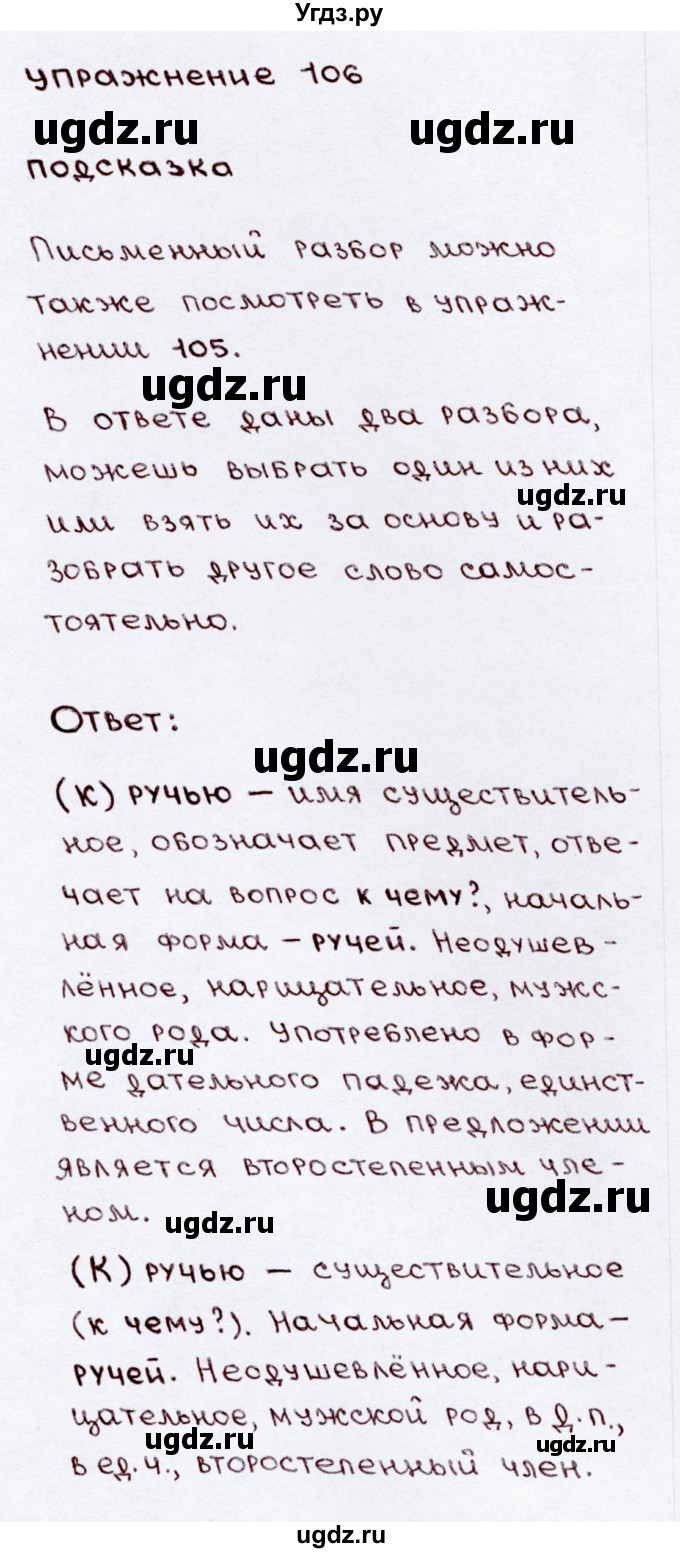 Угдз.ру
упражнение 106
ugdz.ru ugdz.ru
подсказка
Письменный разбор можно
также посмотреть в упраж-
нении 105.
ugdz.ru
В ответе даны два разбора,
можешь выбрать один из них
ugdz.ru
или взять их за основу и ра-
зобрать другое слово самос-
тоятельно.
Ответ:
ugdz.ru
(к) ручью – имя существитель-
ное, обозначает предмет, отве-
чает на вопрос к чему?, началь-
ная форма – ручей. Неодушев-
лённое, нарицательное, мужс-
кого рода. Употреблено в фор-
ugdz.ru
ме дательного падежа, единст-
венного числа. В предложении
является второстепенным чле-
ugdz.ru
ном.
ugdz.ru
(К) ручью – существительное
(к чему?). Начальная форма –
ручей. Неодушевлённое, нари-
цательное, мужской род, в д.п.,
ugdz.ru ugdz.ru
в ед.ч., второстепенный член.
ugdz.ru